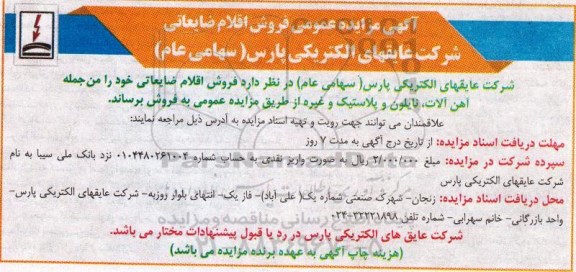 آگهی مزایده عمومی فروش اقلام ضایعاتی
شرکت عایقهای الکتریکی پارس( سهامی عام)
شرکت عایقهای الکتریکی پارس( سهامی عام) در نظر دارد فروش اقلام ضایعاتی خود را من جمله
آهن آلات، نایلون و پلاستیک و غیره از طریق مزایده عمومی به فروش برساند.
علاقمندان می توانند جهت رویت و تهیه اسناد مزایده به آدرس ذیل مراجعه نمایند:
مهلت دریافت اسناد مزایده: از تاریخ درج آگهی به مدت ۷ روز
سپرده شرکت در مزایده: مبلغ ۲/۰۰۰/۰۰۰ ریال به صورت واریز نقدی به حساب شماره ۰۱۰۴۴۸۰۲۶۱۰۰۴ نزد بانک ملی سیبا به نام
شرکت عایقهای الکتریکی پارس
محل دریافت اسناد مزایده: زنجان- شهرک صنعتی شماره یک( علی آباد)- فاز یک- انتهای بلوار روزبه- شرکت عایقهای الکتریکی پارس-
واحد بازرگانی- خانم سهرابی- شماره تلفن ۳۲۲۲۱۸۹۸-۰۲۴
شرکت عایق های الکتریکی پارس در رد یا قبول پیشنهادات مختار می باشد.
(هزینه چاپ آگهی به عهده برنده مزایده می باشد)